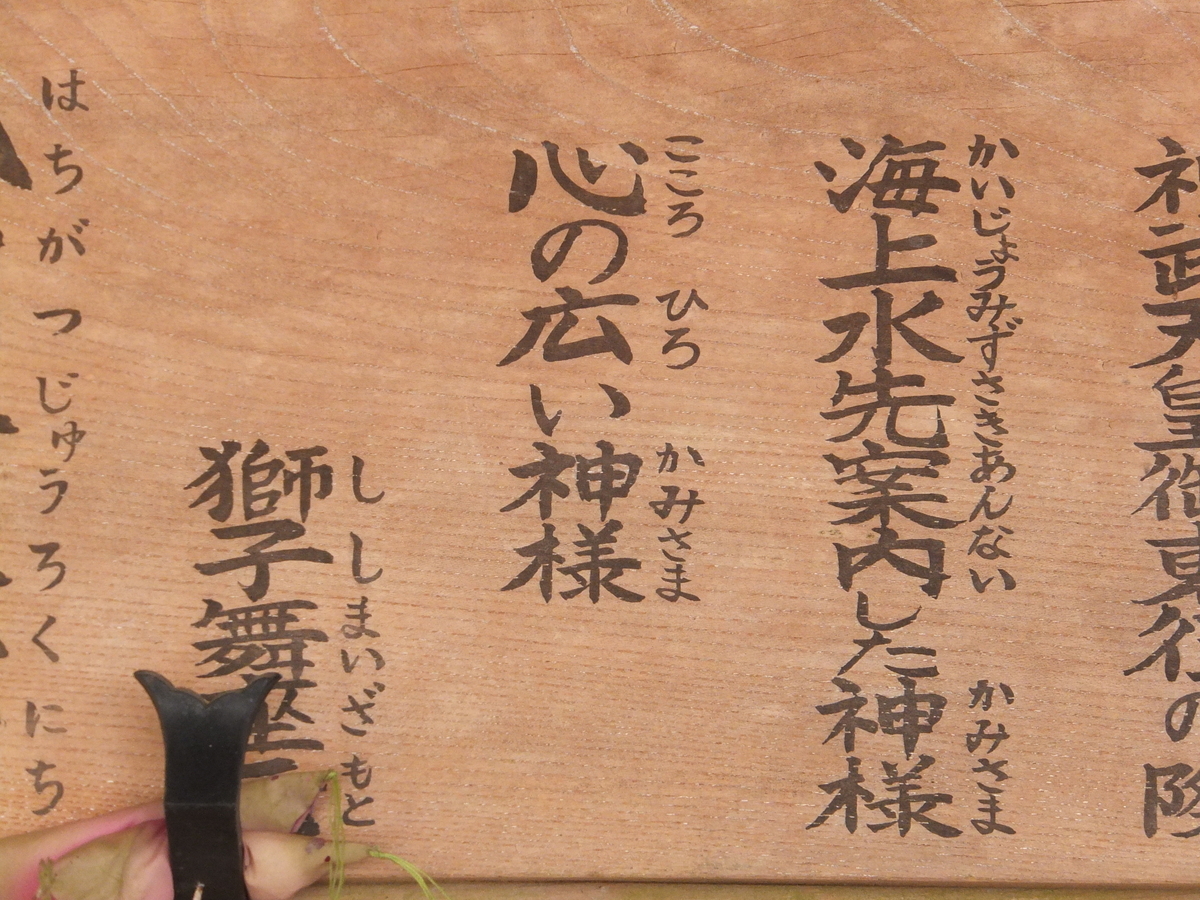 神武天皇御東行の際
かいじょうみずさきあんない かみさま
海上水先案内した神様
こころ ひろ かみさま
心の広い神様
ししまいざもと
獅子舞座元
はちがつじゅうろくにち